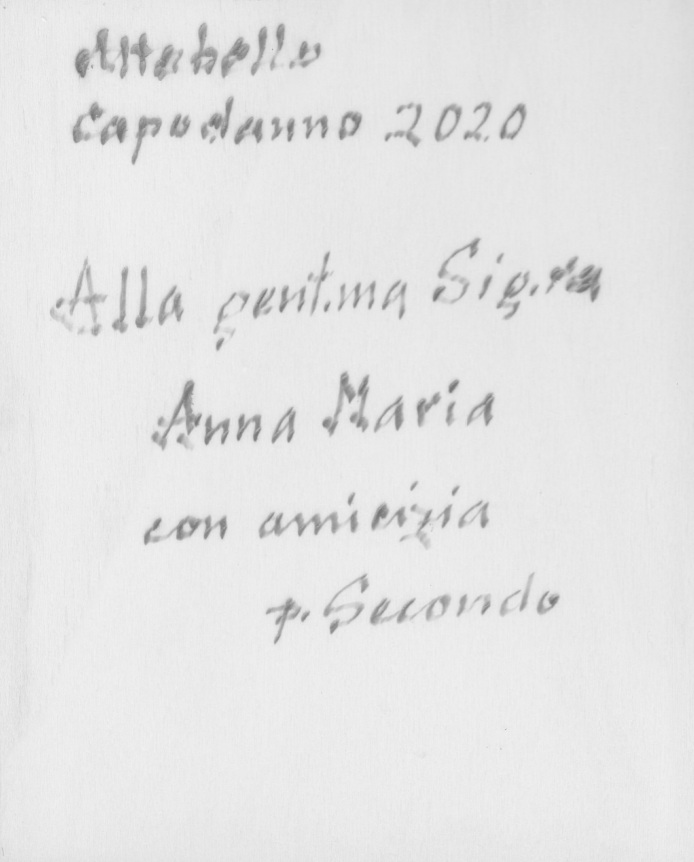 Capodanno 2020
Alla gent.ma Sig.ra
Anna Maria
con amicizia
p. Secondo